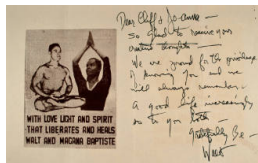 WITH LOVE LIGHT AND SPIRIT
THAT LIBERATES AND HEALS
WALT AND MAGANA BAPTISTE
Dear Cliff & Jo-anne —
So glad to receive your
thoughts —
We are proud for the privilege
of knowing you and we
will always remember —
A good life increasingly
so to you both —
Be —
Walt